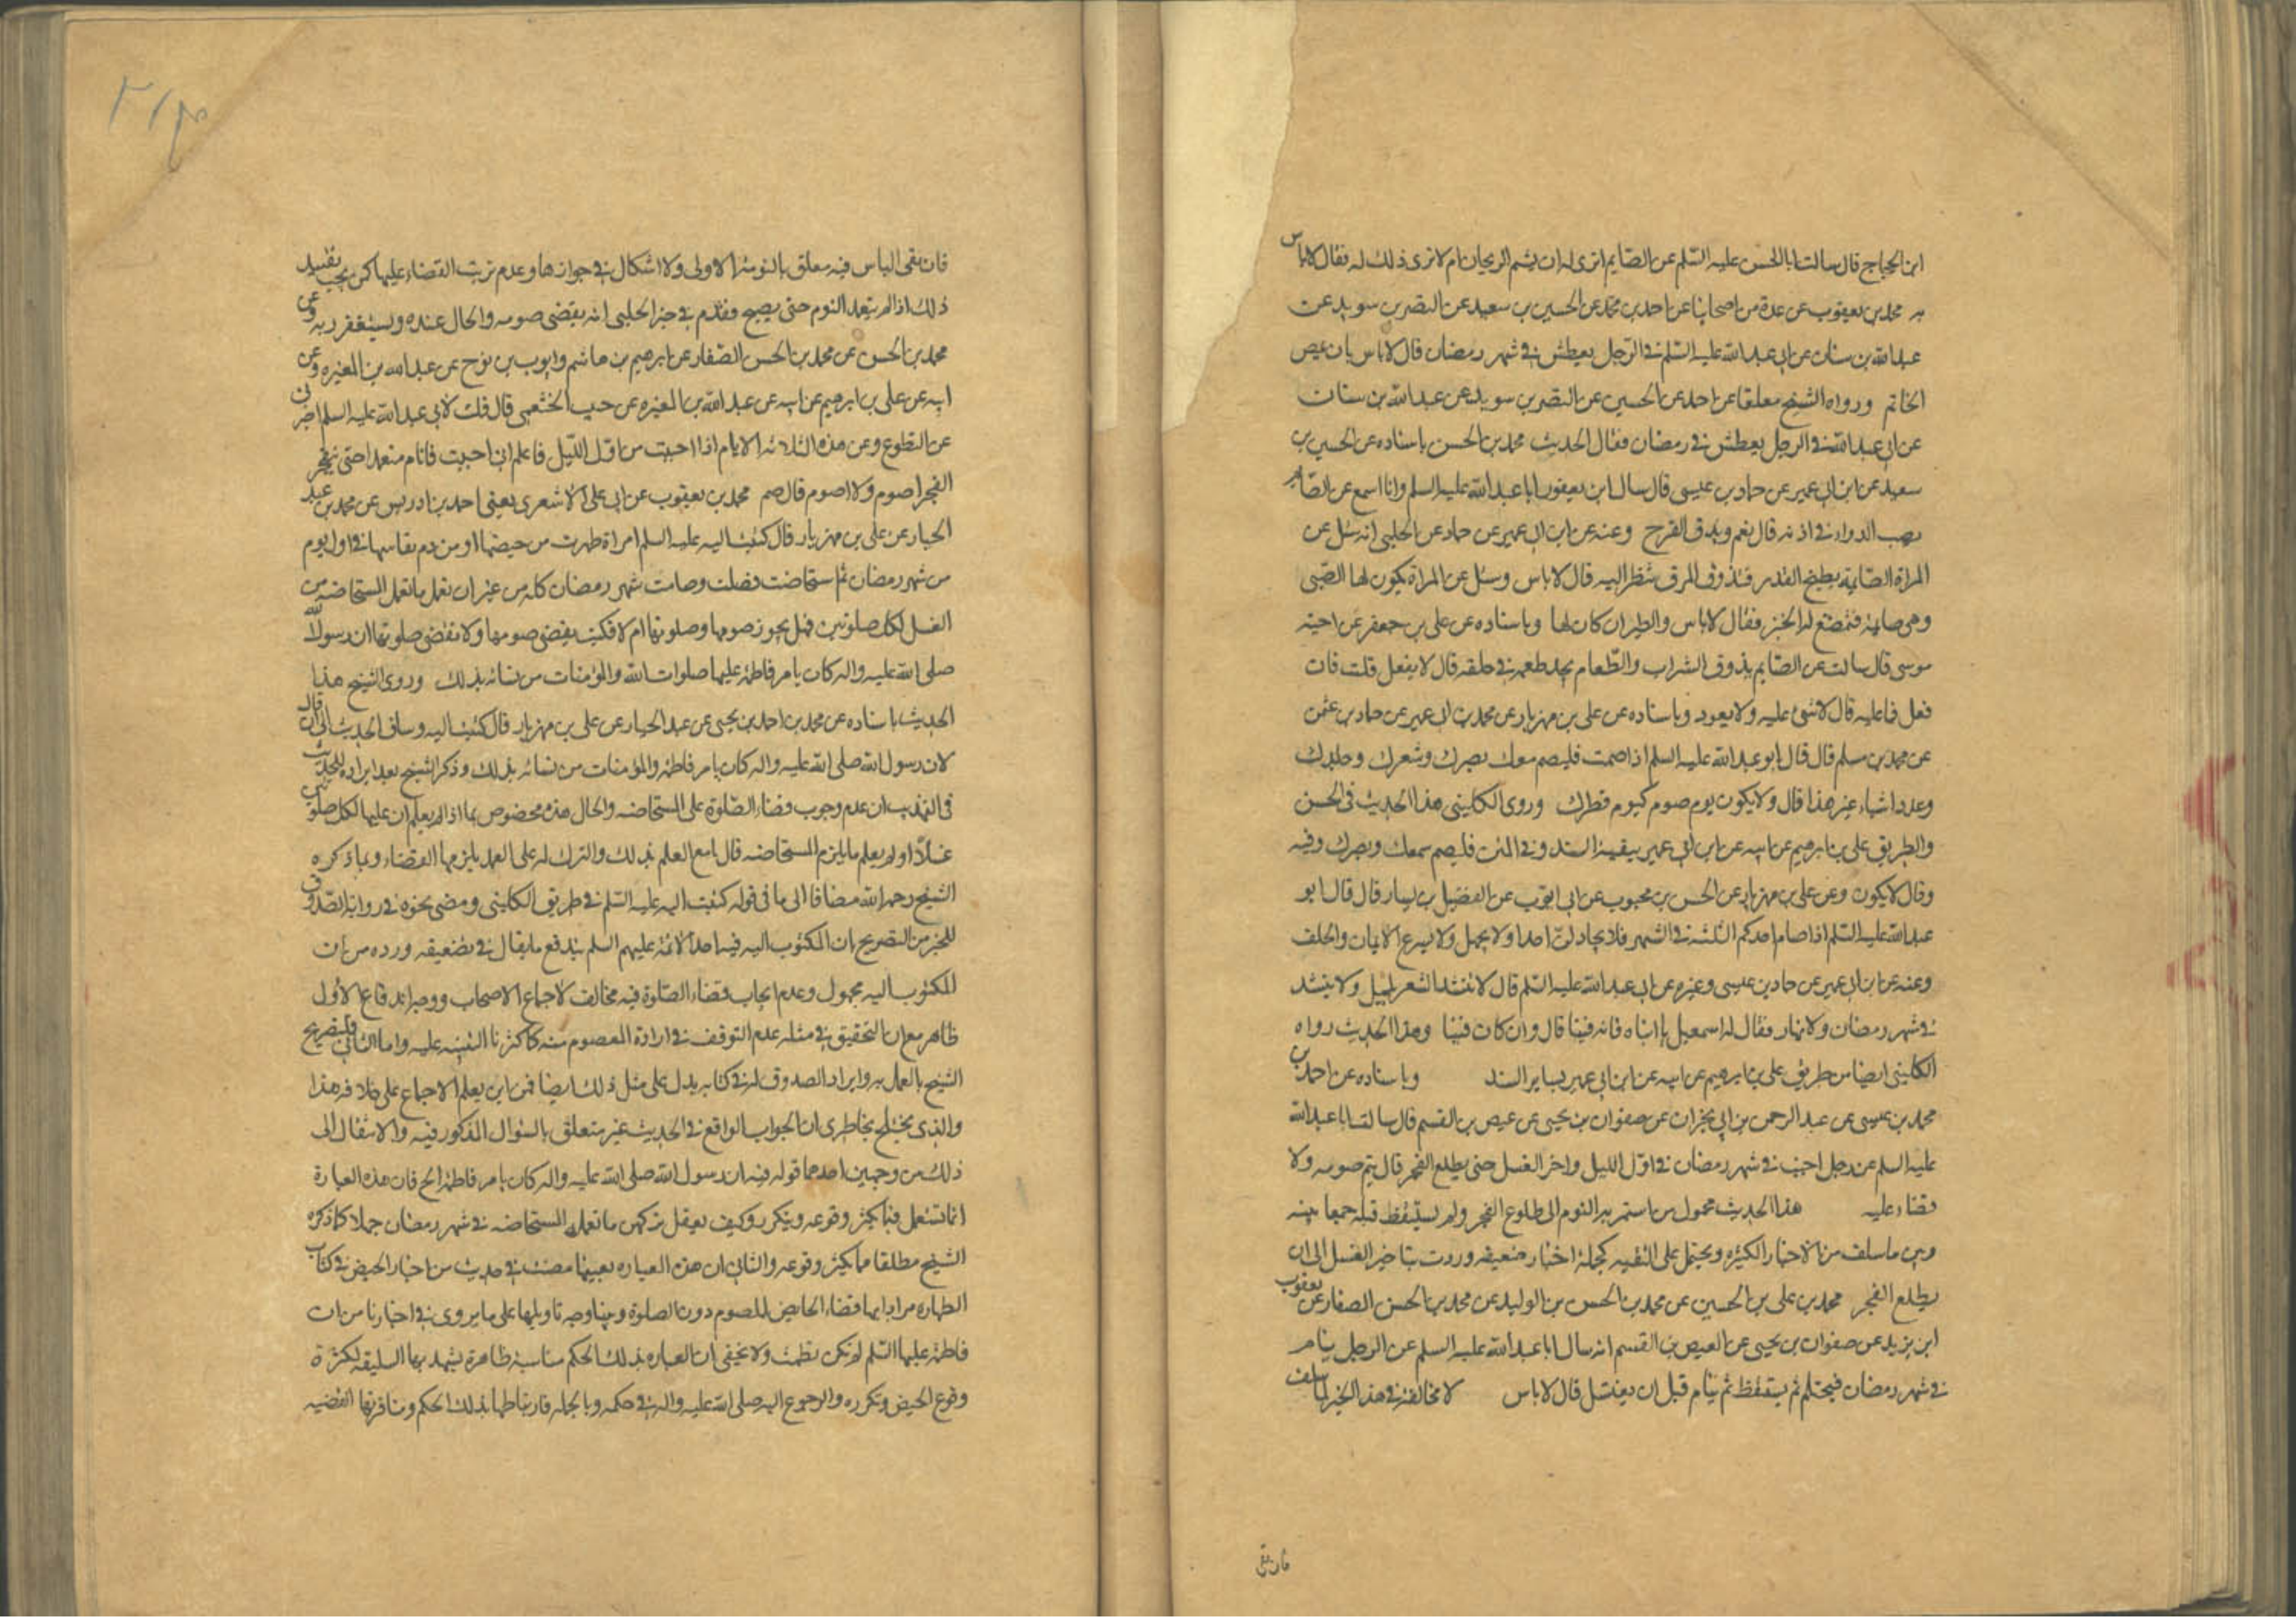 ابن الحجاج قال سالت ابا الحسن عليه السّلم عن الصّايم اترى له ان يشم الريحان ام لا ترى ذلك له فقال لا باس
به محمد بن يعقوب عن عدة من اصحابنا عن احمد بن محمد عن الحسين بن سعيد عن النضر بن سويد عن
عبد الله بن سنان عن ابي عبد الله عليه السّلم في الرّجل يعطش في شهر رمضان قال لا باس بان يمص
الخاتم ورواه الشيخ معلقا عن احمد عن الحسين عن النضر بن سويد عن عبد الله بن سنان
عن ابي عبد الله في الرجل يعطش في رمضان فقال الحديث محمد بن الحسن باسناده عن الحسين بن
سعيد عن ابن ابي عمير عن حماد بن عيسى قال سال ابن يعفور ابا عبد الله عليه السلم وانا اسمع عن الصّايم
يصب الدواء في اذنه قال نعم ويذوق المرق وعنه عن ابن ابي عمير عن حماد عن الحلبي انه سئل عن
المراة الصّايمة يطبخ القدر فتذوق المرق تنظر اليه قال لا باس وسئل عن المراة يكون لها الصّبي
وهي صايمة فتمضغ له الخبز فقال لا باس والطير ان كان لها وباسناده عن علي بن جعفر عن اخيه
موسى قال سالت عن الصّايم يذوق الشراب والطّعام يجد طعمه في حلقه قال لا يفعل قلت فان
فعل فما عليه قال لا شئ عليه ولا يعود وباسناده عن علي بن مهزيار عن محمد بن ابي عمير عن حماد بن عثمن
عن محمد بن مسلم قال قال ابو عبد الله عليه السلم اذا صمت فليصم سمعك وبصرك وشعرك وجلدك
وعدد اشياء غير هذا قال ولا يكون يوم صومك كيوم فطرك وروى الكليني هذا الحديث في الحسن
والطريق علي بن ابرهيم عن ابيه عن ابن ابي عمير ببقية السند وفي المتن فليصم سمعك وبصرك وفيه
وقال لا يكون وعن علي بن مهزيار عن الحسن بن محبوب عن ابي ايوب عن الفضيل بن يسار قال قال ابو
عبد الله عليه السّلم اذا صام احدكم الثلثة في الشهر فلا يجادلنّ احدا ولا يجهل ولا يسرع الايمان والحلف
وعنه عن ابن ابي عمير عن حماد بن عيسى وغيره عن ابي عبد الله عليه السّلم قال لا تنشد الشعر بليل ولا ينشد
في شهر رمضان ولا نهار فقال له اسمعيل يا ابتاه فانه فينا قال وان كان فينا وهذا الحديث رواه
الكليني ايضا من طريق علي بن ابرهيم عن ابيه عن ابن ابي عمير بساير السند وباسناده عن احمد بن
محمد بن عيسى عن عبد الرحمن بن ابي نجران عن صفوان بن يحيى عن عيص بن القسم قال سالت ابا عبد الله
عليه السلم عن رجل اجنب في شهر رمضان في اوّل الليل واخر الغسل حتى يطلع الفجر قال يتم صومه ولا
قضاء عليه هذا الحديث محمول من استمر به النوم الى طلوع الفجر ولم يستيقظ قبله جمعا بينه
وبين ما سلف من الاخبار الكثيره ويحتمل على التقيه كجملة اخبار ضعيفه وردت بتاخير الغسل الى ان
يطلع الفجر محمد بن علي بن الحسين عن محمد بن الحسن بن الوليد عن محمد بن الحسن الصفار عن يعقوب
ابن يزيد عن صفوان بن يحيى عن العيص بن القسم انه سال ابا عبد الله عليه السلم عن الرجل ينام
في شهر رمضان فيحتلم ثم يستيقظ ثم ينام قبل ان يغتسل قال لا باس لا مخالفة في هذا الخبر لما سلف
فان نفى
فان نفى الباس فيه معلق بالنومة الاولى ولا اشكال في جوازها وعدم ترتب القضاء عليها لكن يجب تقييد
ذلك اذا لم يتعمد النوم حتى يصبح وتقدم في خبر الحلبي انه يقضي صومه والحال عنده ويستغفر ربه وعن
محمد بن الحسن عن محمد بن الحسن الصفار عن ابرهيم بن هاشم وايوب بن نوح عن عبد الله بن المغيره وعن
ابيه عن علي بن ابرهيم عن ابيه عن عبد الله بن المغيره عن حبيب الخثعمي قال قلت لابي عبد الله عليه السلم اخبرني
عن التطوع وعن هذه الثلاثة الايام اذا اجنبت من اوّل اللّيل فاعلم اني اجنبت فانام متعمدا حتى ينفجر
الفجر اصوم ولا اصوم قال صم محمد بن يعقوب عن ابي علي الاشعري يعني احمد بن ادريس عن محمد بن عبد
الجبار عن علي بن مهزيار قال كتبت اليه عليه السلم امراة طهرت من حيضها او من دم نفاسها في اول يوم
من شهر رمضان ثم استحاضت فصلت وصامت شهر رمضان كله من غير ان تعمل ما تعمل المستحاضه من
الغسل لكل صلوتين فهل يجوز صومها وصلوتها ام لا فكتب يقضي صومها ولا تقضي صلوتها ان رسول الله
صلى الله عليه واله كان يامر فاطمة عليها صلوات الله والمؤمنات من نسائه بذلك وروى الشيخ هذا
الحديث باسناده عن محمد بن احمد بن يحيى عن عبد الجبار عن علي بن مهزيار قال كتبت اليه وساق الحديث الى ان قال
لان رسول الله صلى الله عليه واله كان يامر فاطمة والمؤمنات من نسائه بذلك وذكر الشيخ بعد ايراده للحديث
في التهذيب ان عدم وجوب قضاء الصّلوة على المستحاضه والحال هذه مخصوص بما اذا لم يعلم ان عليها لكل صلوتين
غسلا او لم يعلم ما يلزم المستحاضه قال فامع العلم بذلك والترك له على العمد يلزمها القضاء وبما ذكره
الشيخ رحمه الله مضافا الى ما في قوله كتبت اليه عليه السّلم في طريق الكليني ومضى نحوه في رواية الصّدوق
للخبر من التصريح بان المكتوب اليه فيه احد الائمة عليهم السلم يندفع ما يقال في تضعيفه ورده من ان
المكتوب اليه مجهول وعدم ايجاب قضاء الصّلوة فيه مخالف لاجماع الاصحاب ووجه اندفاع الاول
ظاهر مع ان التحقيق في مثله عدم التوقف في ارادة المعصوم منه كما كررنا التنبيه عليه واما الثاني فلتصريح
الشيخ بالعمل به وايراد الصدوق له في كتابه يدل على مثل ذلك ايضا فمن اين يعلم الاجماع على خلافه هذا
والذي يختلج بخاطري ان الجواب الواقع في الحديث غير متعلق بالسّؤال المذكور فيه والانتقال الى
ذلك من وجهين احدهما قوله فيه ان رسول الله صلى الله عليه واله كان يامر فاطمة الخ فان هذه العبارة
انما تستعمل فيما يكثر وقوعه ويتكرر وكيف يعقل تركهن ما تعمله المستحاضه في شهر رمضان جملا كما ذكره
الشيخ مطلقا مما يكثر وقوعه والثاني ان هذه العباره بعينها مضت في حديث من اخبار الحيض في كتاب
الطهاره مرادا بها قضاء الحايض للصوم دون الصلوة وبينا وجه تاويلها على ما يروى في اخبارنا من ان
فاطمة عليها السّلم لم تكن تطمث ولا يخفى ان للعباره بذلك الحكم مناسبة ظاهرة يشهد بها السليقه لكثرة
وقوع الحيض وتكرره والرجوع اليه صلى الله عليه واله في حكمه وبالجمله فارتباطها بذلك الحكم ومنافرتها لقضيه